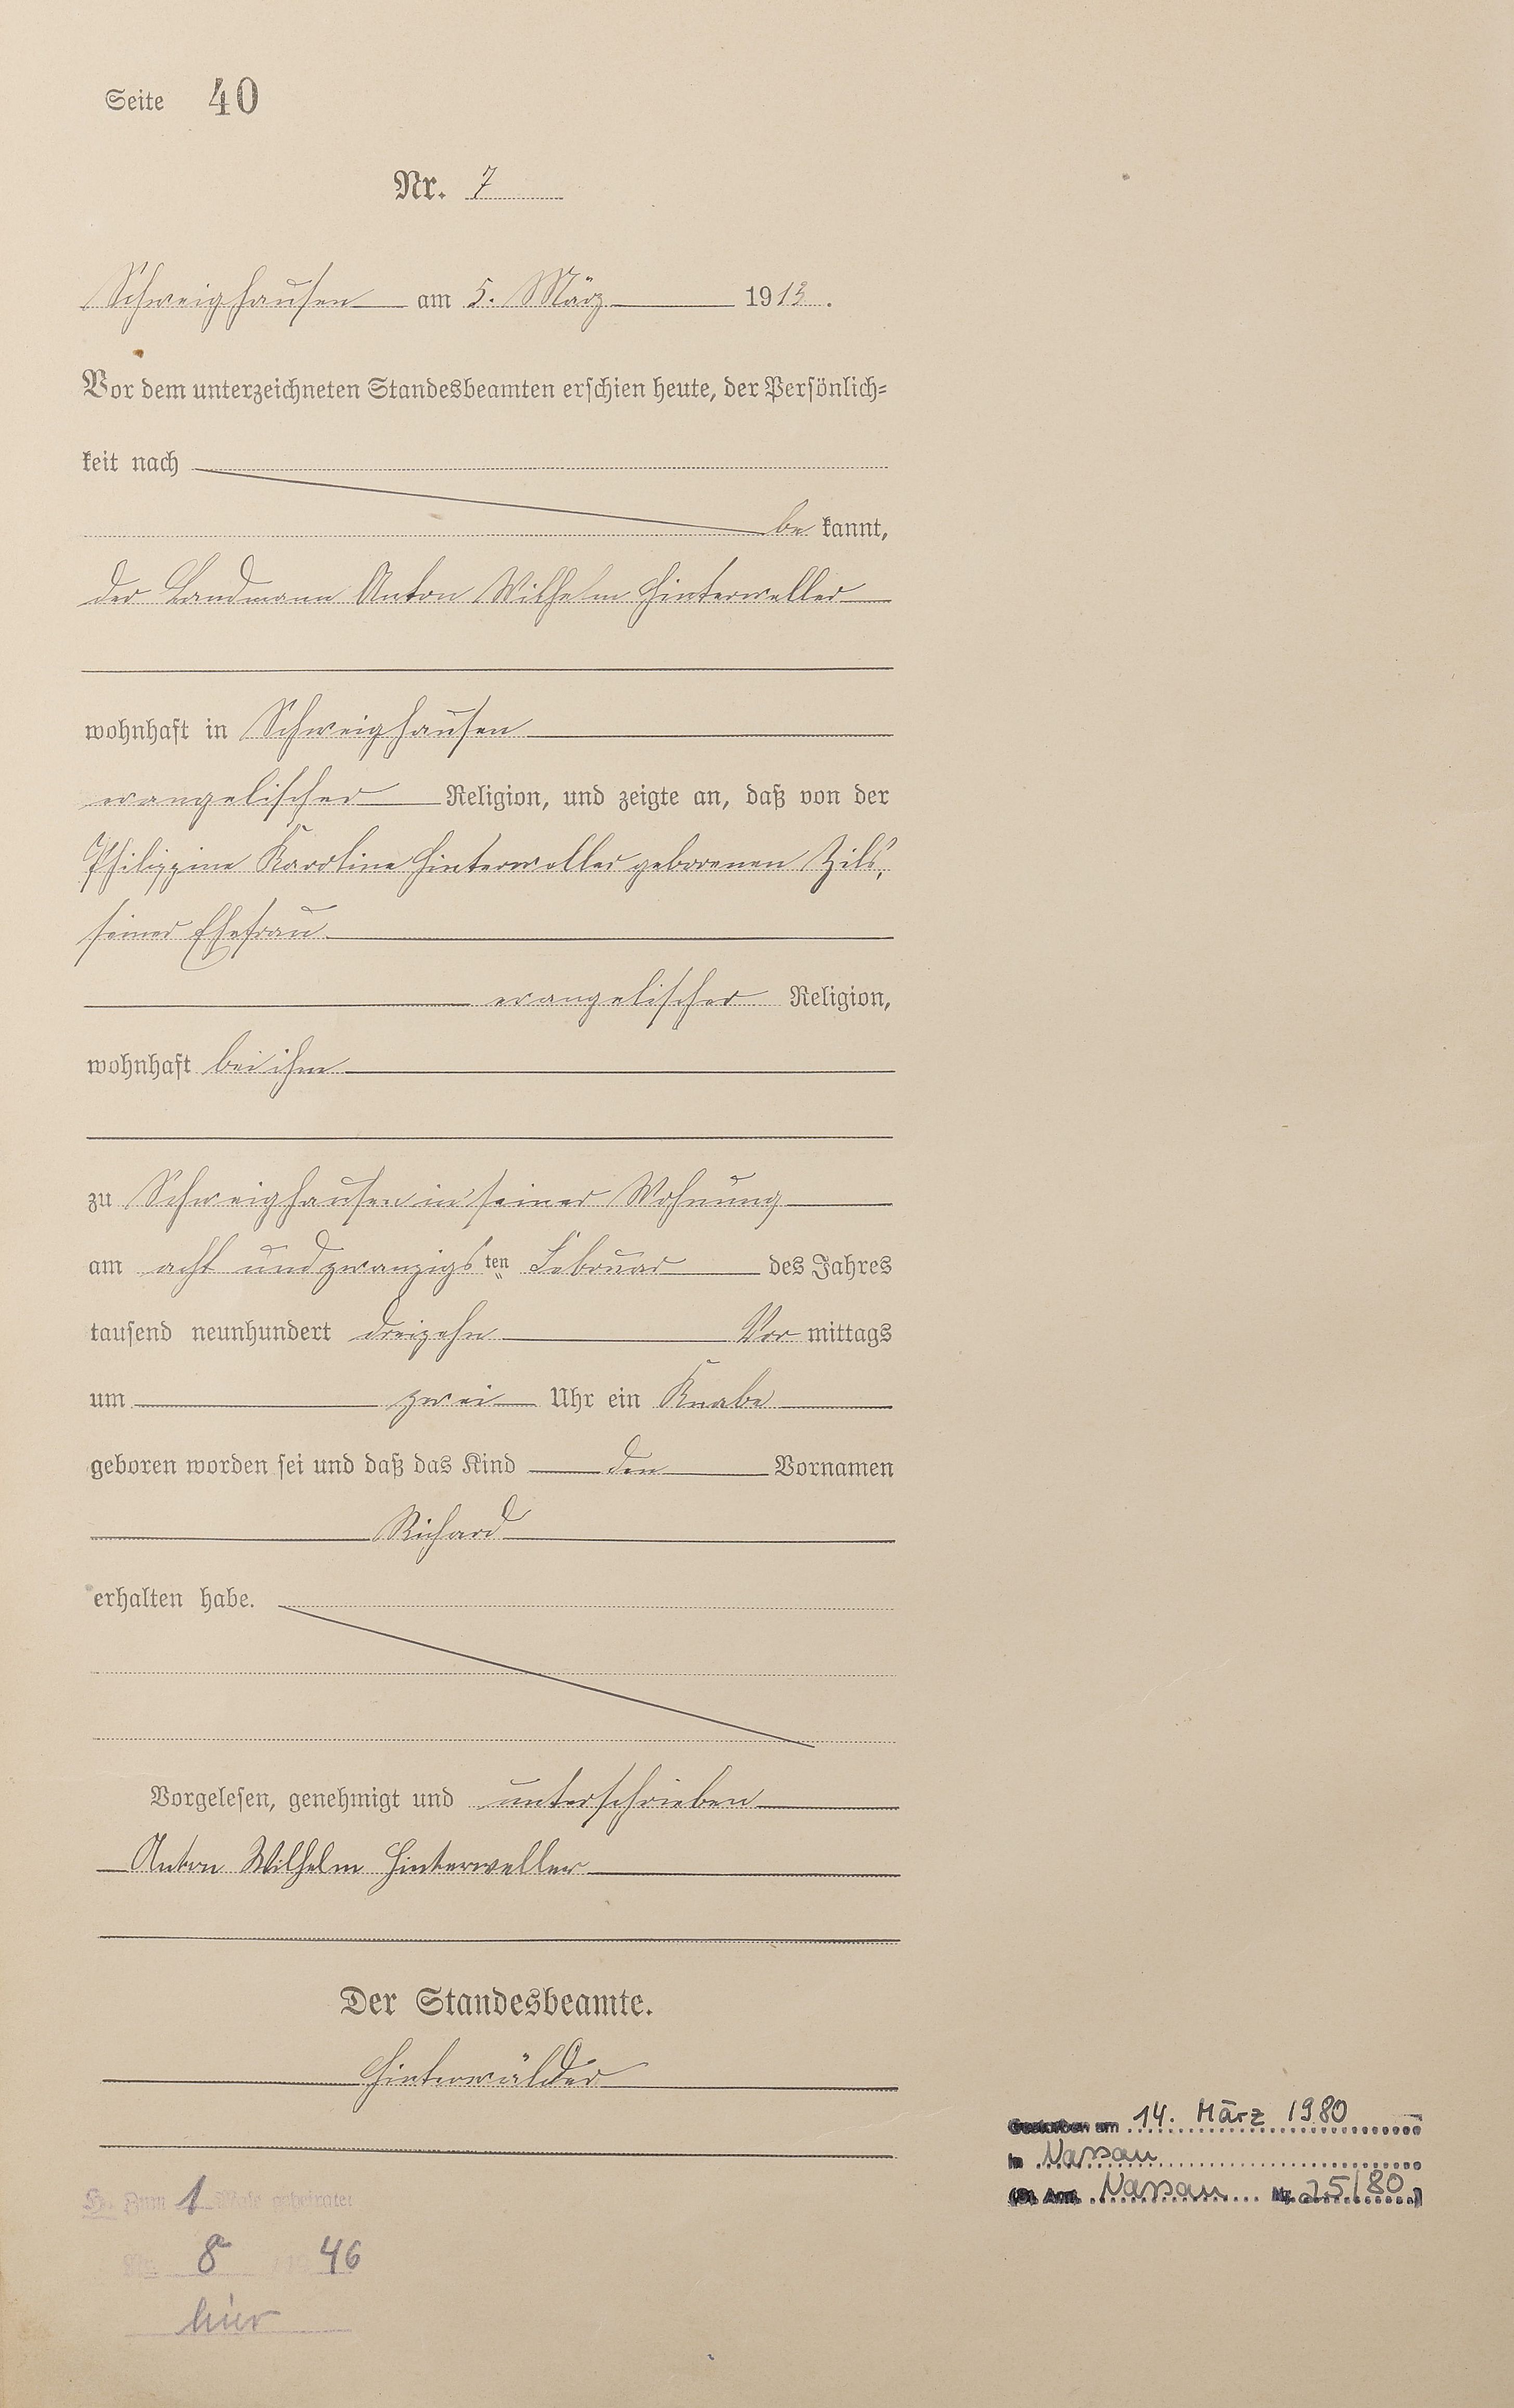 Seite 40
Nr. 7
Schweighausen am 5. März 1913.
Vor dem unterzeichneten Standesbeamten erschien heute, der Persönlich-
keit nach
be kannt,
der Landmann Anton Wilhelm Hinterweller
wohnhaft in Schweighausen
evangelischer Religion, und zeigte an, daß von der
Philippine Karoline Hinterweller geborenen Zils,
seiner Ehefrau
evangelischer Religion,
wohnhaft bei ihm
zu Schweighausen in seiner Wohnung
am acht und zwanzigsten Februar des Jahres
tausend neunhundert dreizehn Vor mittags
um zwei Uhr ein Knabe
geboren worden sei und daß das Kind den Vornamen
Richard
erhalten habe.
Vorgelesen, genehmigt und unterschrieben
Anton Wilhelm Hinterweller
Der Standesbeamte.
Hinterwälder
Gestorben am 14. März 1980
in Nassau
(St. Amt Nassau Nr. 25/80)
Zum 1. Male geheiratet
Nr. 8 46
hier